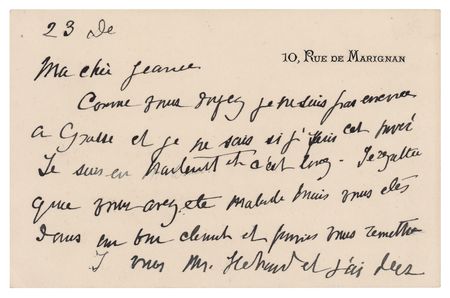 23 De
10, RUE DE MARIGNAN
Ma chère Jeanne
Comme vous voyez je ne suis pas encore
a Grasse et je ne sais si j'irais cet
Je suis en et c'est long. Je regrette
que vous avez été malade mais vous êtes
dans un bon climat et pourrez vous remettre
vous Mr. et j'ai